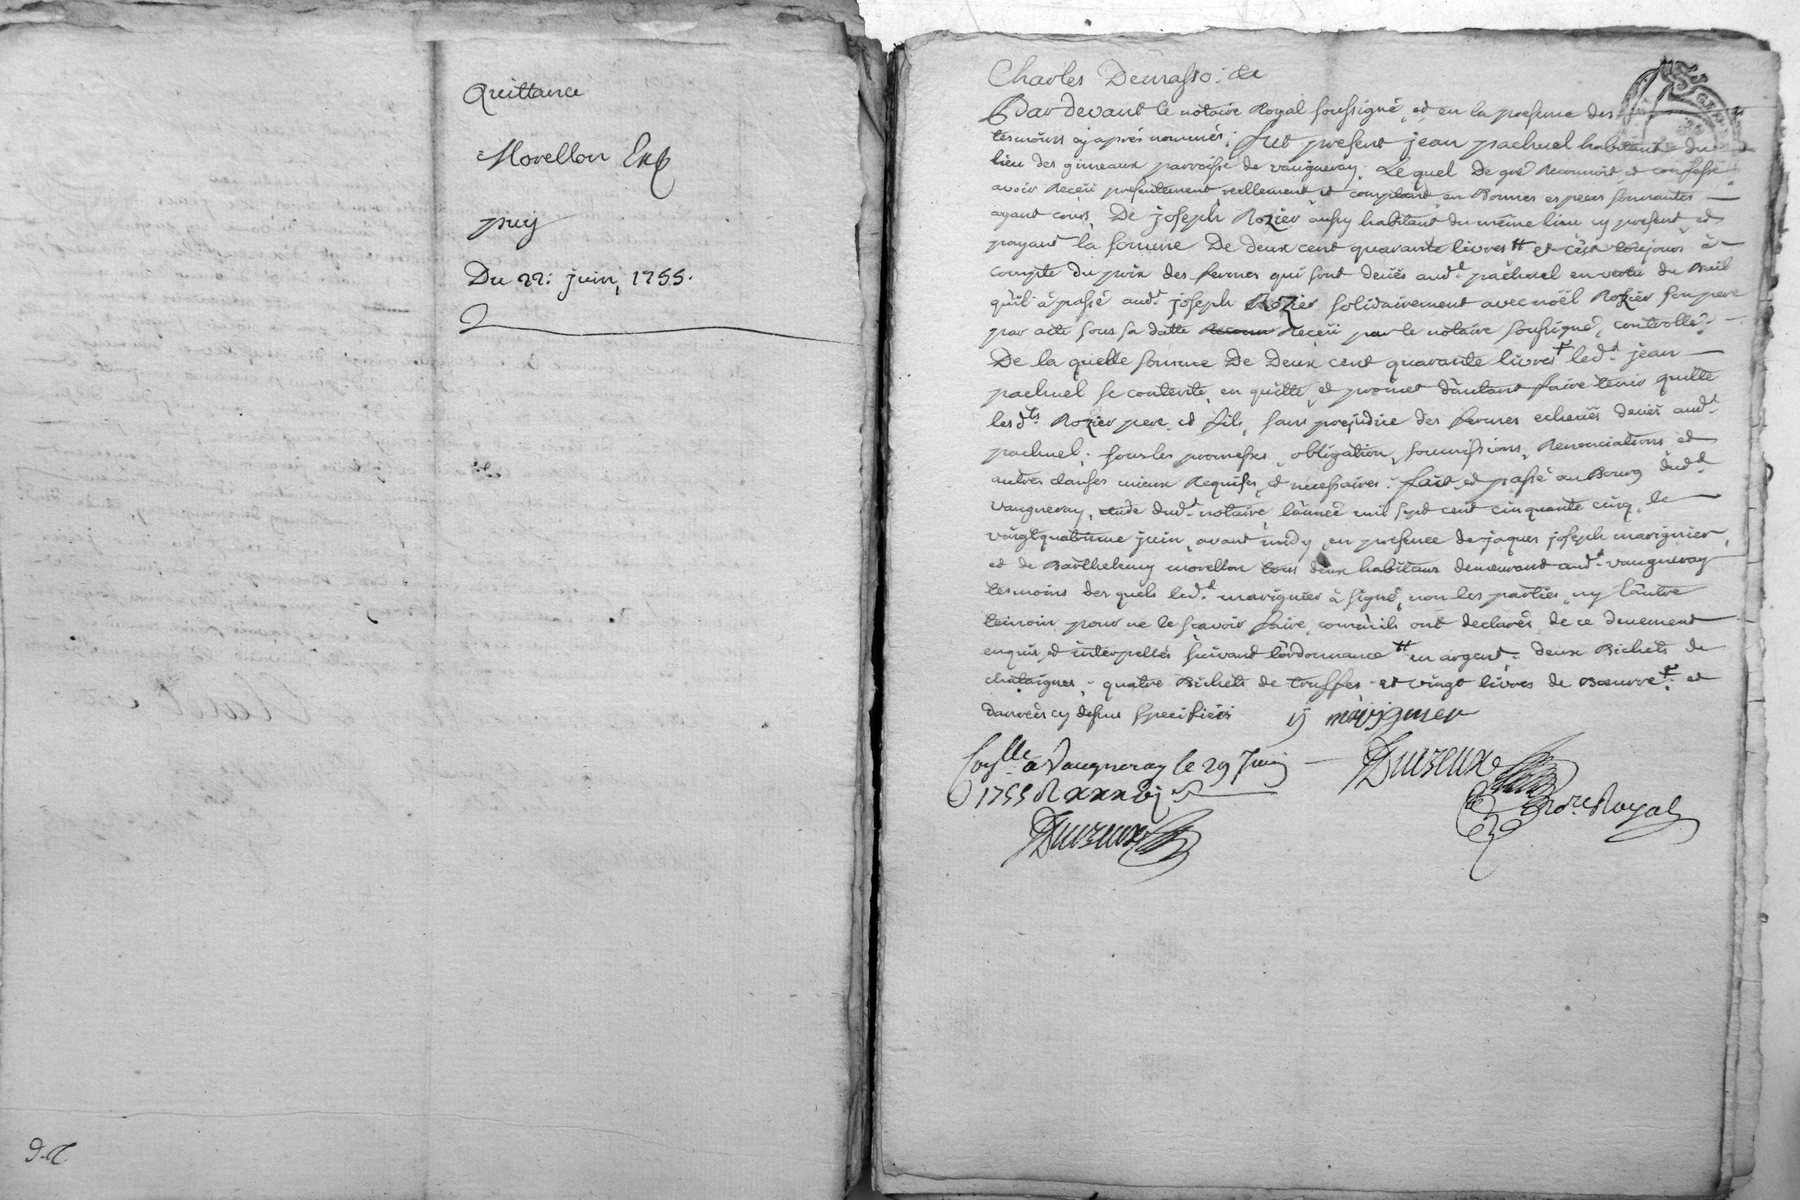 Quittance
Morellon Exp
puy
Du 22: juin, 1755.
9.
Charles
Pardevant le notaire Royal soussigné, et en la presence des
tesmoins cy après nommés: fut present jean pachuel habitant du
lieu des gimeaux parroisse de vaugneray, Lequel De gré Reconnoit et confesse
avoir Receü presentement reellement et comptant en Bonnes especes sonnantes
ayant cours, De joseph Rozier aussy habitant du même lieu cy present et
payant la somme De deux cent quarante livres tt et c'est toujours à
compte du prix des fermes qui sont deües aud.t pachuel en vertu du Bail
qu'il à passé aud.t joseph Rozier solidairement avec noël Rozier son pere
par acte sous sa datte Receü par le notaire soussigné, controllé:
De la quelle somme De Deux cent quarante livres led.t jean
pachuel se contente, en quitte, et promet d'autant faire tenir quitte
les d.ts Rozier pere et fils, sans prejudice des fermes echeües deües aud.t
pachuel; sous les promesses, obligation, soumissions, Renonciations et
autres clauses mieux Requises, et necessaires: fait et passé au Bourg dud.t
vaugneray, etude dud.t notaire l'année mil sept cent cinquante cinq, le
vaingtquatrieme juin, avant midy, en presence de jaques joseph marignier,
et de Barthelemy morellon tous deux habitans demeurant aud.t vaugneray
tesmoins des quels led.t marignier à signé, non les parties, ny l'autre
temoin pour ne le sçavoir faire, comm'ils ont declarés, de ce deuement
enquis, et interpellés suivant l'ordonnance tt en argent, deux Bichets de
chataignes, quatre Bichets de truffes et vingt livres de Bœurre, et
danrées cy dessus specifiées jj marignier
Con.lle à Vaugneray le 29 Juin
1755 R
Nore Royal